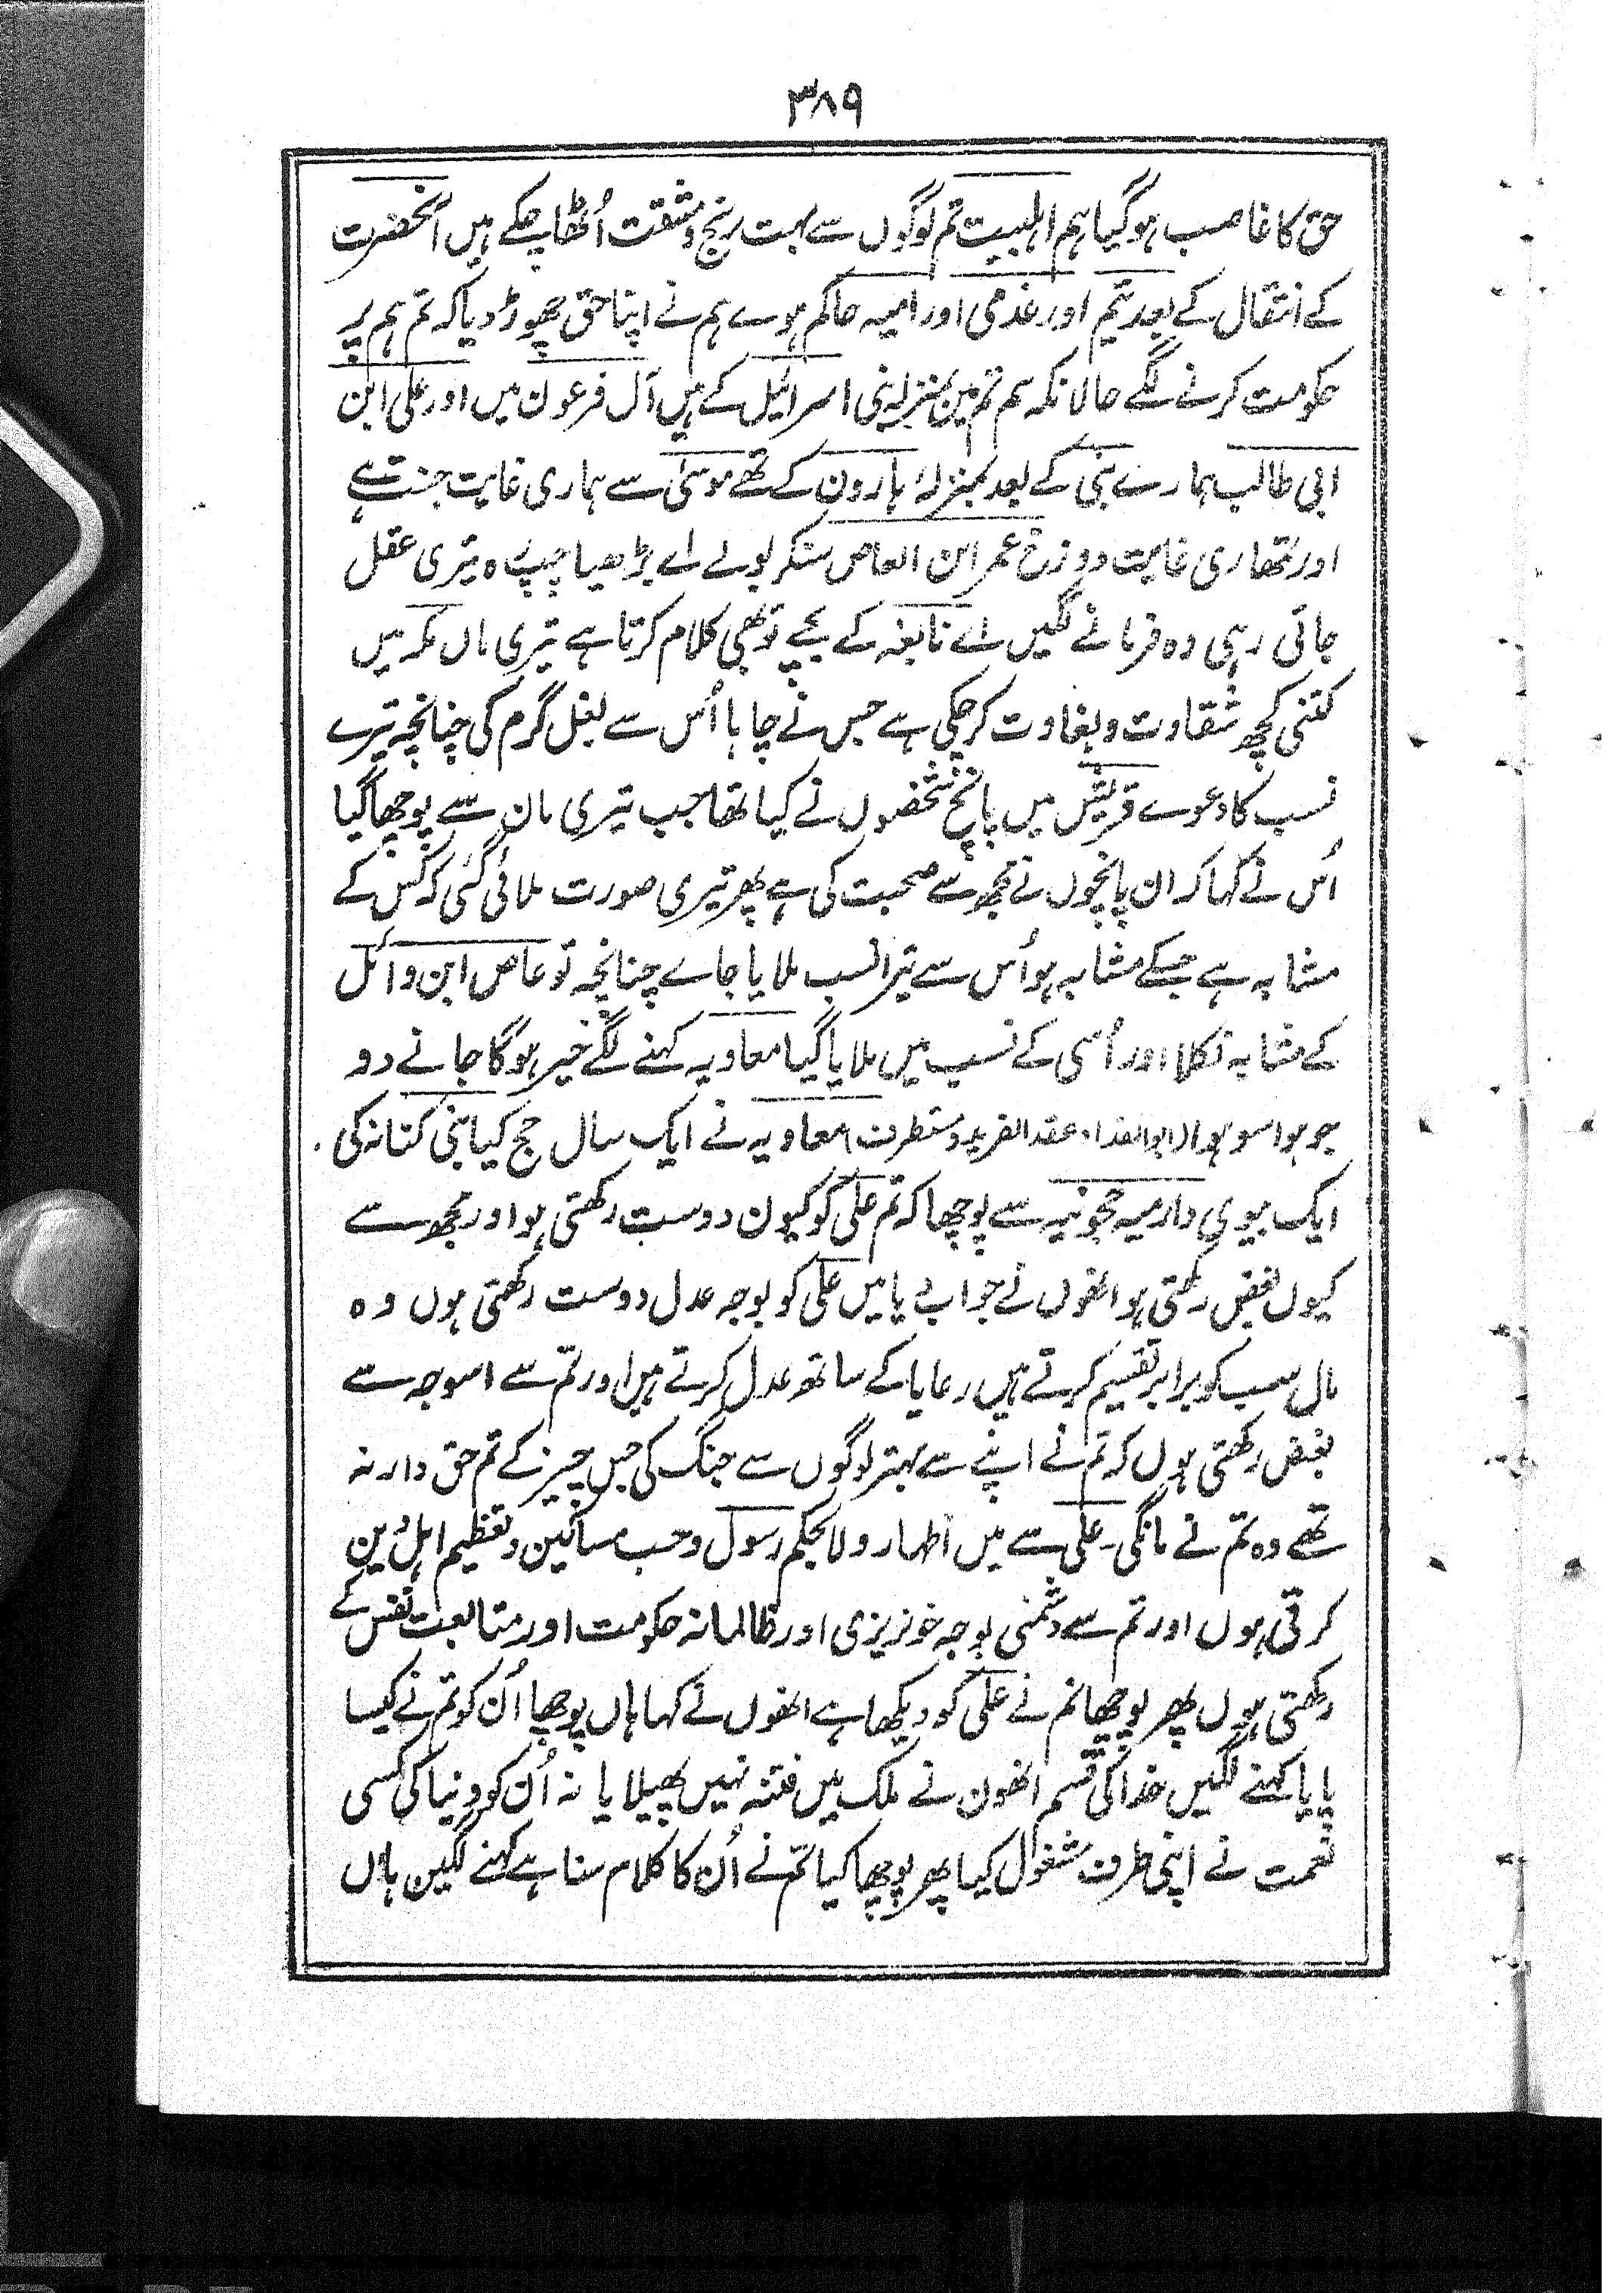 ۳۸۹
حق کا غاصب ہوگیا ہم اہلبیت تم لوگوں سے بہت رنج و مشقت اُٹھا چکے ہیں آنحضرت
کے انتقال کے بعد تیم اور عدمی اور امیہ حاکم ہوے ہم نے اپنا حق چھوڑ دیا کہ تم ہم پر
حکومت کرنے لگے حالانکہ ہم تم مین بمنزلہ بنی اسرائیل کے ہیں آل فرعون میں اور علی ابن
ابی طالب ہمارے نبی کے بعد بمنزلۂ ہارون کے تھے موسیٰ سے ہماری غایت جنت ہے
اور تمھاری غایت دوزخ عمر ابن العاص سنکر بولے اے بڑھیا چپ رہ تیری عقل
جاتی رہی وہ فرمانے لگیں اے نابغہ کے بچے تو بھی کلام کرتا ہے تیری ماں مکہ میں
کتنی کچھ شقاوت و بغاوت کرچکی ہے جس نے چاہا اُس سے بغل گرم کی چنانچہ تیرے
نسب کا دعوے قریش میں پانچ شخصوں نے کیا تھا جب تیری مان سے پوچھا گیا
اُس نے کہا کہ ان پانچوں نے مجھ سے صحبت کی ہے پھر تیری صورت ملائی گئی کہ کس کے
مشابہ ہے جسکے مشابہ ہو اُس سے تیرا نسب ملایا جاے چنانچہ تو عاص ابن وائل
کے مشابہ نکلا اور اُسی کے نسب میں ملایا گیا معاویہ کہنے لگے خیر ہوگا جانے دو
جو ہوا سو ہوا (ابوالفداء عقد الفرید و مستطرف) معاویہ نے ایک سال حج کیا بنی کنانہ کی
ایک بیوی دارمیہ حجونیہ سے پوچھا کہ تم علی کو کیون دوست رکھتی ہو اور مجھ سے
کیوں بغض رکھتی ہو انھوں نے جواب دیا میں علی کو بوجہ عدل دوست رکھتی ہوں وہ
مال سب کو برابر تقسیم کرتے ہیں رعایا کے ساتھ عدل کرتے ہیں اور تم سے اسوجہ سے
بغض رکھتی ہوں کہ تم نے اپنے سے بہتر لوگوں سے جنگ کی جس چیز کے تم حق دار نہ
تھے وہ تم نے مانگی۔ علی سے میں اظہار ولا بحکم رسول و حب مساکین و تعظیم اہل دین
کرتی ہوں اور تم سے دشمنی بوجہ خونریزی اور ظالمانہ حکومت اور متابعت نفس کے
رکھتی ہوں پھر پوچھا تم نے علی کو دیکھا ہے انھوں نے کہا ہاں پوچھا اُن کو تم نے کیسا
پایا کہنے لگیں خدا کی قسم انھون نے ملک میں فتنہ نہیں پھیلایا نہ اُن کو دنیا کی کسی
نعمت نے اپنی طرف مشغول کیا پھر پوچھا کیا تم نے اُن کا کلام سنا ہے کہنے لگین ہاں